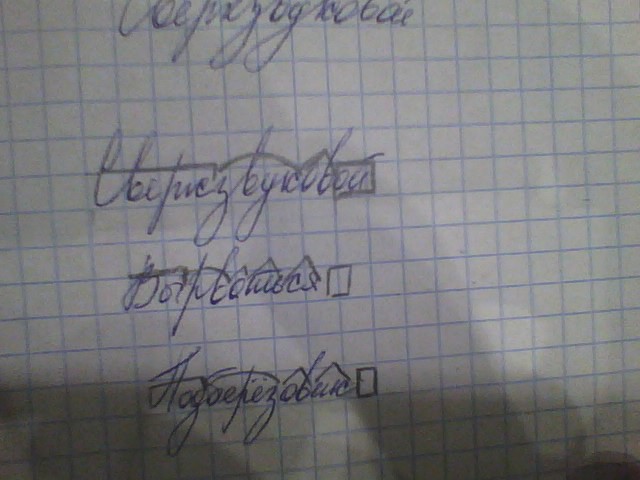 Сверхзвуковой
Сверхзвуковой
Вырваться
Подберёзовик